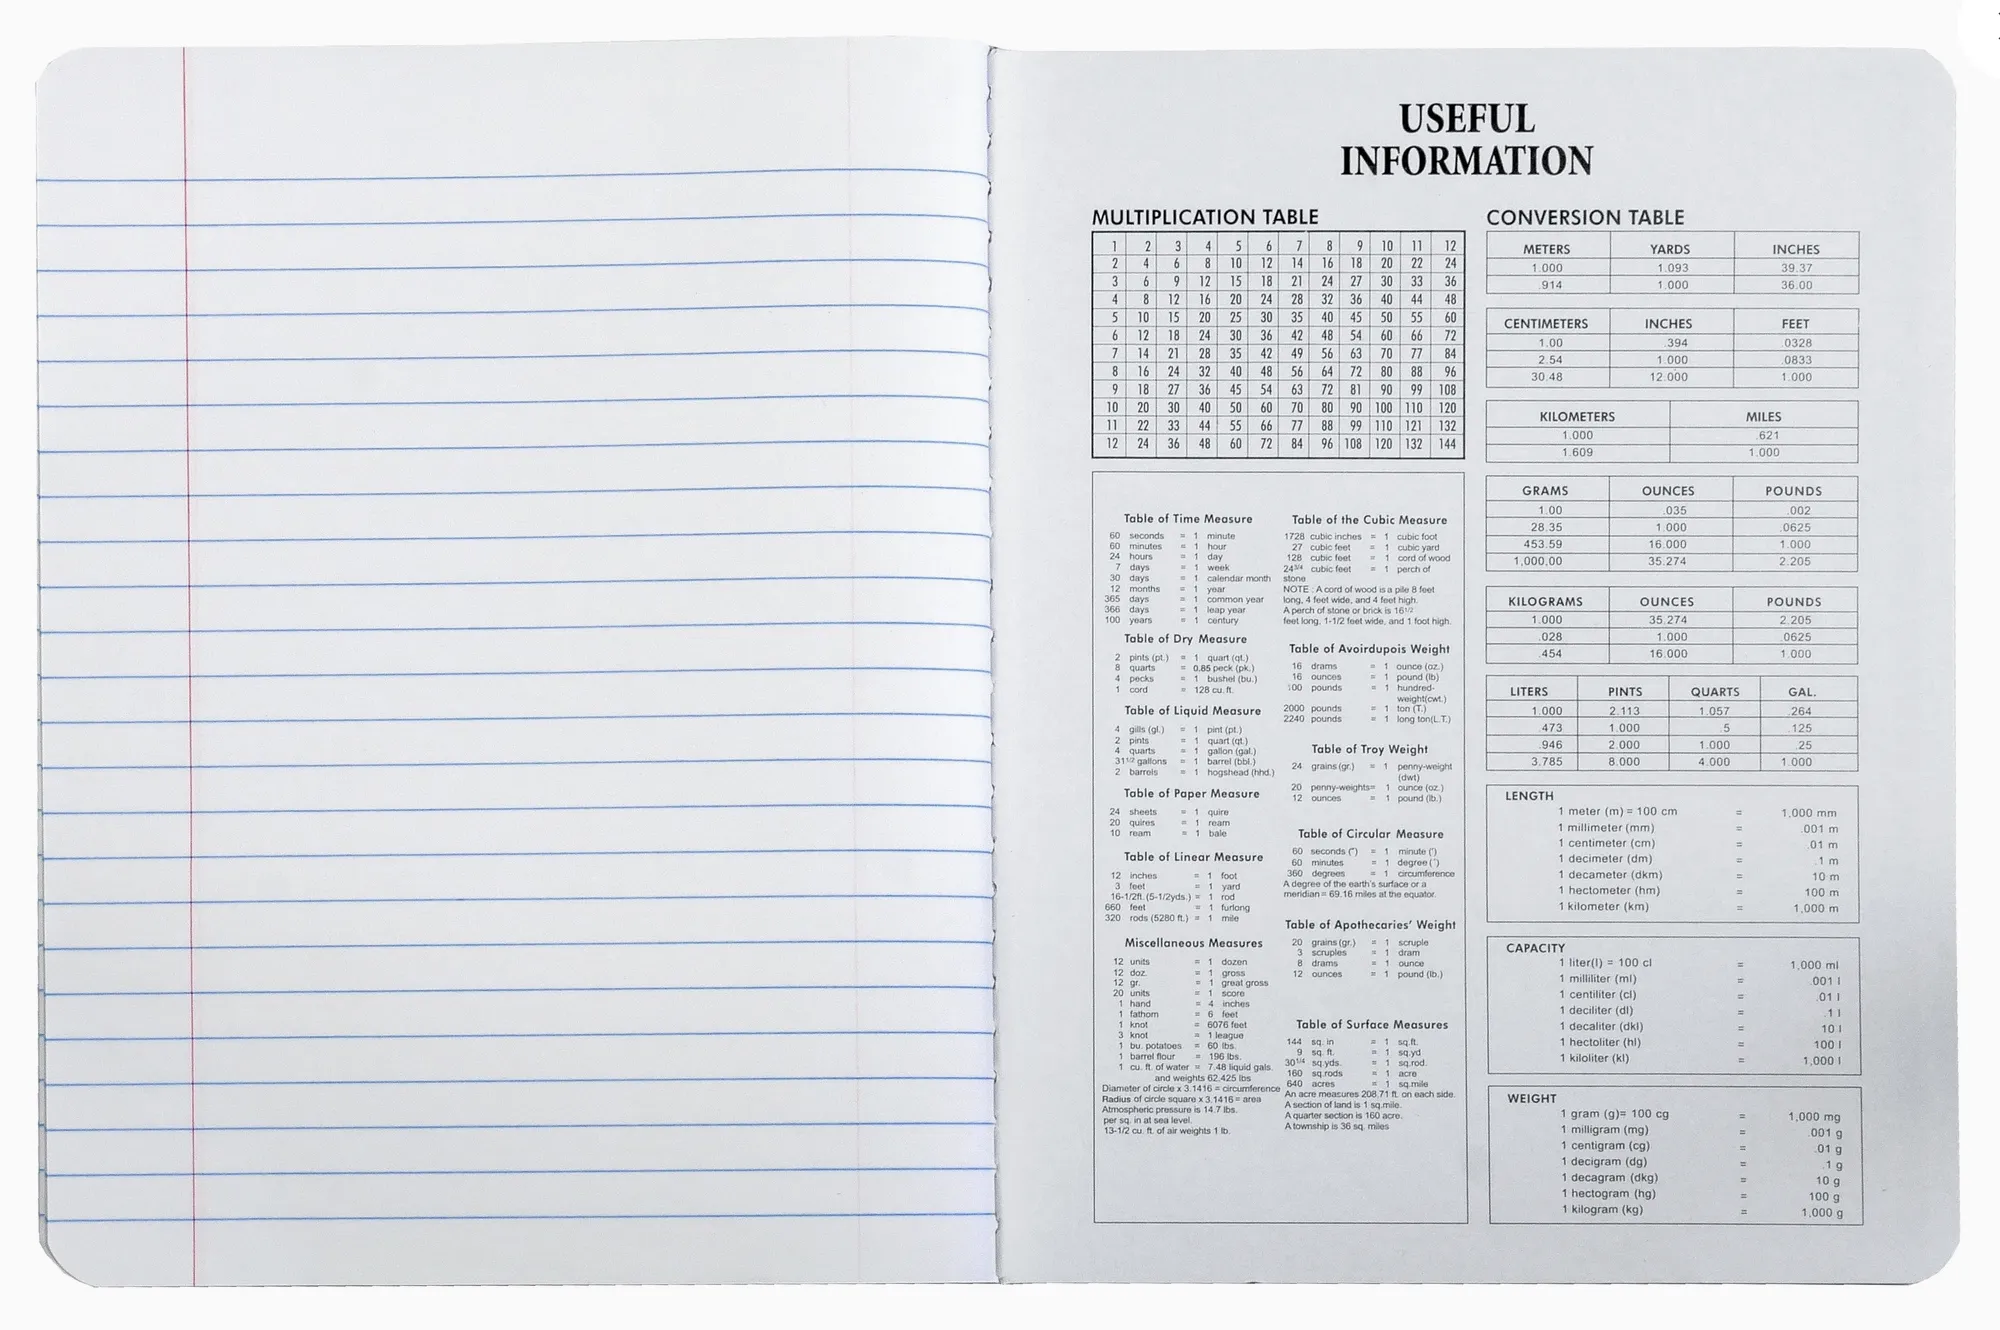 USEFUL
INFORMATION
MULTIPLICATION TABLE
1 2 3 4 5 6 7 8 9 10 11 12
2 4 6 8 10 12 14 16 18 20 22 24
3 6 9 12 15 18 21 24 27 30 33 36
4 8 12 16 20 24 28 32 36 40 44 48
5 10 15 20 25 30 35 40 45 50 55 60
6 12 18 24 30 36 42 48 54 60 66 72
7 14 21 28 35 42 49 56 63 70 77 84
8 16 24 32 40 48 56 64 72 80 88 96
9 18 27 36 45 54 63 72 81 90 99 108
10 20 30 40 50 60 70 80 90 100 110 120
11 22 33 44 55 66 77 88 99 110 121 132
12 24 36 48 60 72 84 96 108 120 132 144
Table of Time Measure
60 seconds = 1 minute
60 minutes = 1 hour
24 hours = 1 day
7 days = 1 week
30 days = 1 calendar month
12 months = 1 year
365 days = 1 common year
366 days = 1 leap year
100 years = 1 century
Table of Dry Measure
2 pints (pt.) = 1 quart (qt.)
8 quarts = 0.85 peck (pk.)
4 pecks = 1 bushel (bu.)
1 cord = 128 cu. ft.
Table of Liquid Measure
4 gills (gl.) = 1 pint (pt.)
2 pints = 1 quart (qt.)
4 quarts = 1 gallon (gal.)
31 1/2 gallons = 1 barrel (bbl.)
2 barrels = 1 hogshead (hhd.)
Table of Paper Measure
24 sheets = 1 quire
20 quires = 1 ream
10 ream = 1 bale
Table of Linear Measure
12 inches = 1 foot
3 feet = 1 yard
16-1/2ft. (5-1/2yds.) = 1 rod
660 feet = 1 furlong
320 rods (5280 ft.) = 1 mile
Miscellaneous Measures
12 units = 1 dozen
12 doz. = 1 gross
12 gr. = 1 great gross
20 units = 1 score
1 hand = 4 inches
1 fathom = 6 feet
1 knot = 6076 feet
3 knot = 1 league
1 bu. potatoes = 60 lbs.
1 barrel flour = 196 lbs.
1 cu. ft. of water = 7.48 liquid gals.
and weights 62.425 lbs
Diameter of circle x 3.1416 = circumference
Radius of circle square x 3.1416 = area
Atmospheric pressure is 14.7 lbs.
per sq. in at sea level.
13-1/2 cu. ft. of air weights 1 lb.
Table of the Cubic Measure
1728 cubic inches = 1 cubic foot
27 cubic feet = 1 cubic yard
128 cubic feet = 1 cord of wood
24 3/4 cubic feet = 1 perch of
stone
NOTE : A cord of wood is a pile 8 feet
long, 4 feet wide, and 4 feet high.
A perch of stone or brick is 16 1/2
feet long, 1-1/2 feet wide, and 1 foot high.
Table of Avoirdupois Weight
16 drams = 1 ounce (oz.)
16 ounces = 1 pound (lb)
100 pounds = 1 hundred-
weight(cwt.)
2000 pounds = 1 ton (T.)
2240 pounds = 1 long ton(L.T.)
Table of Troy Weight
24 grains (gr.) = 1 penny-weight
(dwt)
20 penny-weights= 1 ounce (oz.)
12 ounces = 1 pound (lb.)
Table of Circular Measure
60 seconds (") = 1 minute (')
60 minutes = 1 degree (°)
360 degrees = 1 circumference
A degree of the earth's surface or a
meridian = 69.16 miles at the equator.
Table of Apothecaries' Weight
20 grains (gr.) = 1 scruple
3 scruples = 1 dram
8 drams = 1 ounce
12 ounces = 1 pound (lb.)
Table of Surface Measures
144 sq. in = 1 sq.ft.
9 sq. ft. = 1 sq.yd
30 1/4 sq.yds. = 1 sq.rod.
160 sq.rods = 1 acre
640 acres = 1 sq.mile
An acre measures 208.71 ft. on each side.
A section of land is 1 sq.mile.
A quarter section is 160 acre.
A township is 36 sq. miles
CONVERSION TABLE
METERS YARDS INCHES
1.000 1.093 39.37
.914 1.000 36.00
CENTIMETERS INCHES FEET
1.00 .394 .0328
2.54 1.000 .0833
30.48 12.000 1.000
KILOMETERS MILES
1.000 .621
1.609 1.000
GRAMS OUNCES POUNDS
1.00 .035 .002
28.35 1.000 .0625
453.59 16.000 1.000
1,000.00 35.274 2.205
KILOGRAMS OUNCES POUNDS
1.000 35.274 2.205
.028 1.000 .0625
.454 16.000 1.000
LITERS PINTS QUARTS GAL.
1.000 2.113 1.057 .264
.473 1.000 .5 .125
.946 2.000 1.000 .25
3.785 8.000 4.000 1.000
LENGTH
1 meter (m) = 100 cm = 1,000 mm
1 millimeter (mm) = .001 m
1 centimeter (cm) = .01 m
1 decimeter (dm) = .1 m
1 decameter (dkm) = 10 m
1 hectometer (hm) = 100 m
1 kilometer (km) = 1,000 m
CAPACITY
1 liter(l) = 100 cl = 1,000 ml
1 milliliter (ml) = .001 l
1 centiliter (cl) = .01 l
1 deciliter (dl) = .1 l
1 decaliter (dkl) = 10 l
1 hectoliter (hl) = 100 l
1 kiloliter (kl) = 1,000 l
WEIGHT
1 gram (g)= 100 cg = 1,000 mg
1 milligram (mg) = .001 g
1 centigram (cg) = .01 g
1 decigram (dg) = .1 g
1 decagram (dkg) = 10 g
1 hectogram (hg) = 100 g
1 kilogram (kg) = 1,000 g